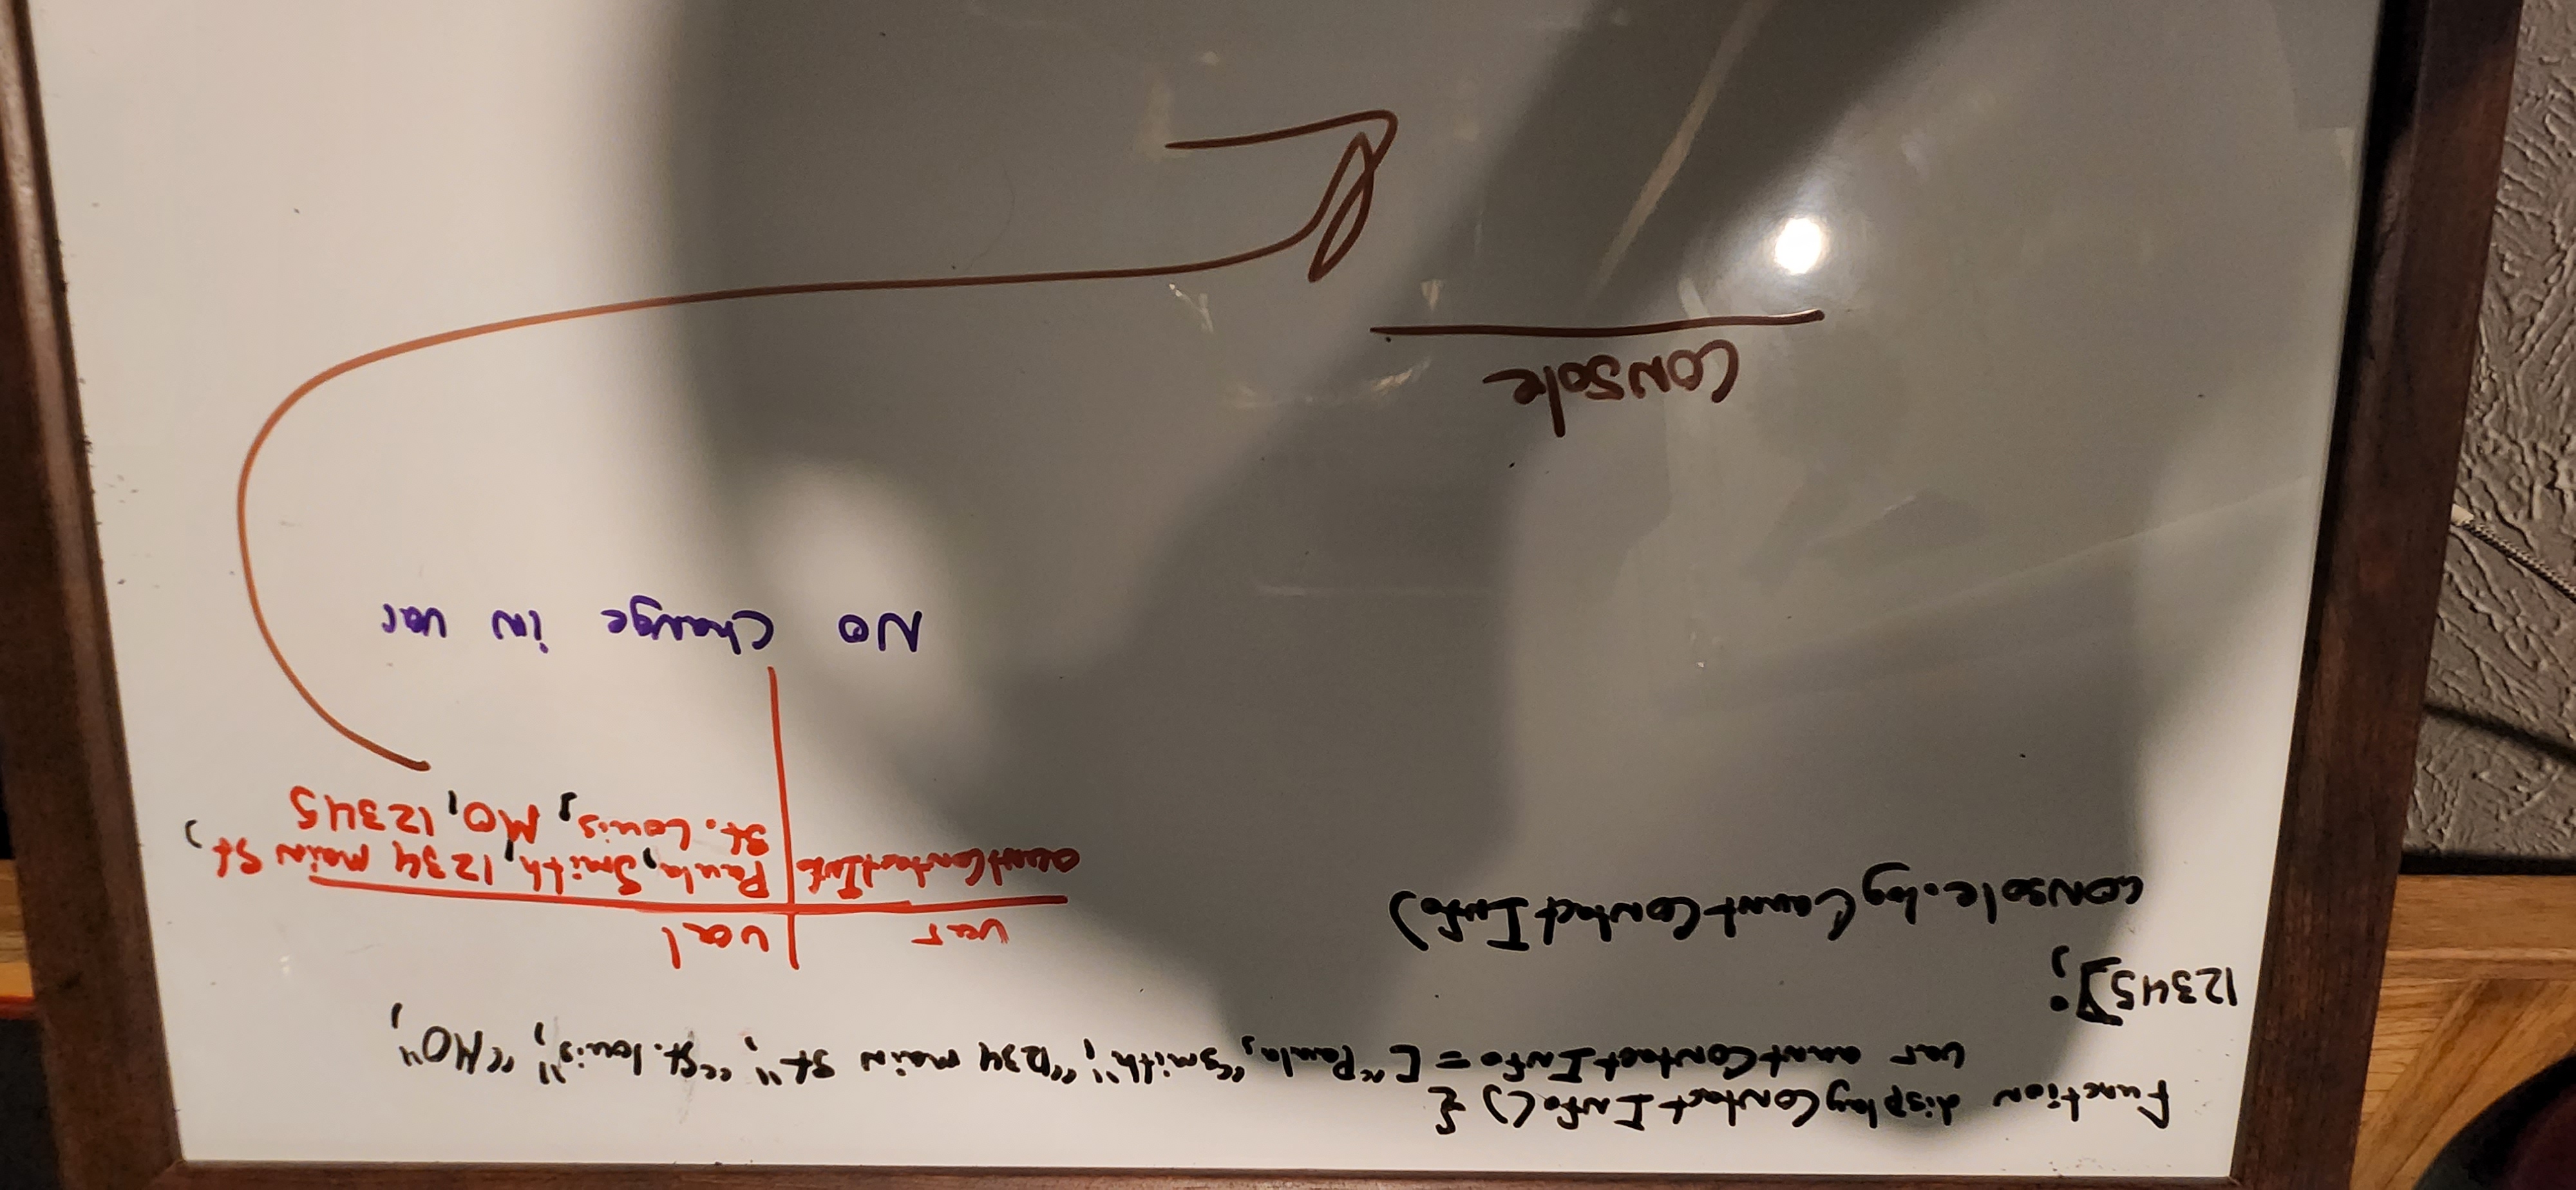 function displayContactInfo() {
var auntContactInfo = ["Paula, "Smith", "1234 main st", "St. louis", "MO",
12345];
console.log(auntContactInfo)
var | val
auntContactInfo | Paula, Smith, 1234 main St,
St. Louis, MO, 12345
No Change in var
Console